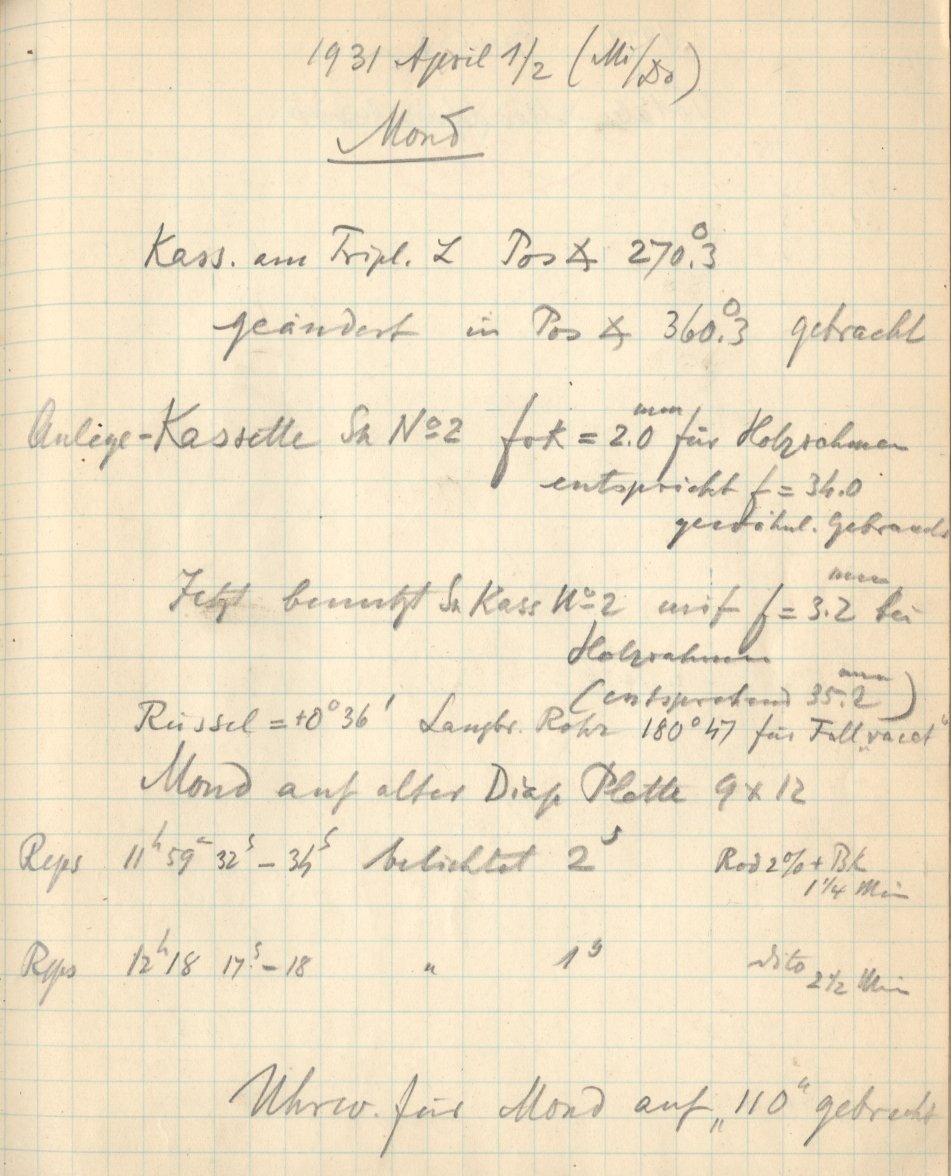 1931 April 1/2 (Mi/Do)
Mond
Kass. am Tripl. L Pos ∡ 270.°3
geändert in Pos ∡ 360.°3 gebracht
Anlege-Kassette Sa No 2 fok = 2.0 mm für Holzrahmen
entspricht f = 34.0
gewöhnl. Gebrauch
Jetzt benutzt Sa Kass No 2 mit f = 3.2 mm bei
Holzrahmen
(entsprechend 35.2 mm)
Rüssel = +0° 36' Langbr. Rohr 180° 47 für Fall
Mond auf alter Diap Platte 9 x 12
11h 59m 32s – 34s belichtet 2s Rod 2% + BK
1 1/4 Min
12h 18 17s – 18 " 1s dito
2 1/2 Min
Uhrw. für Mond auf „110" gebracht